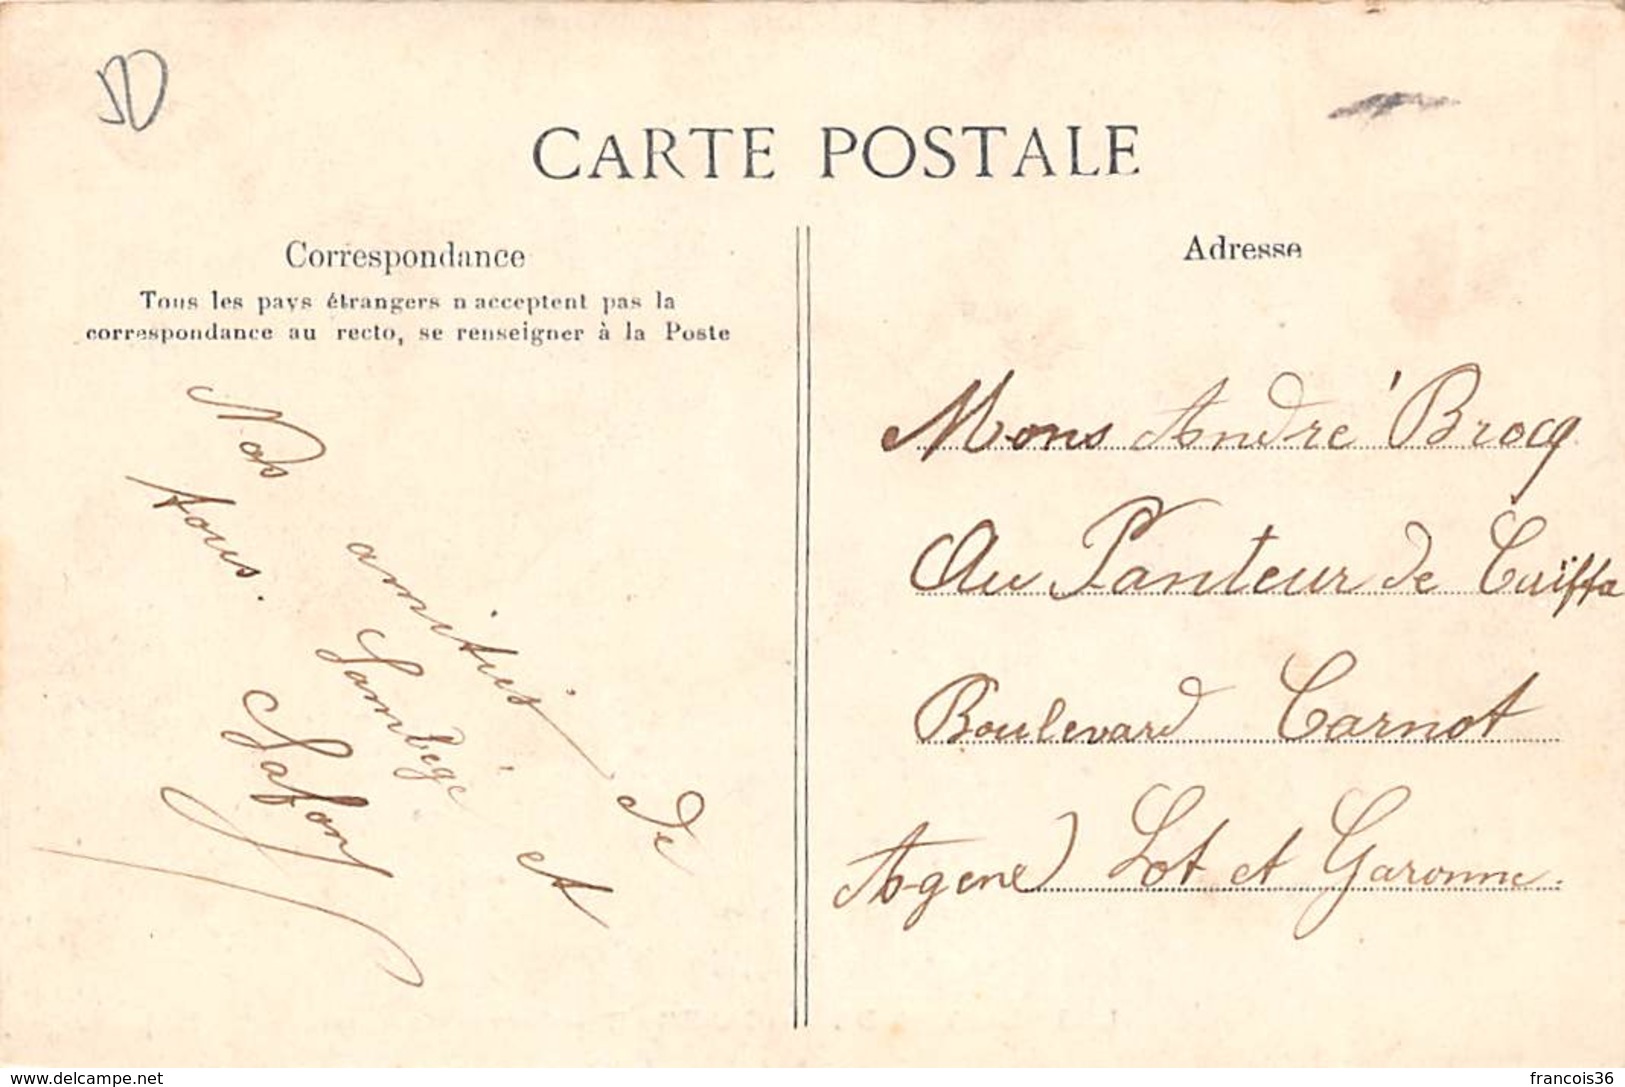 CARTE POSTALE
Correspondance
Tous les pays étrangers n'acceptent pas la
correspondance au recto, se renseigner à la Poste
Nos amitiés de
tous.
Lambégé et
Lafon
Adresse
Mons André Brocq
Au Planteur de Caïffa
Boulevard Carnot
Agen) Lot et Garonne.
www.delcampe.net
francois36